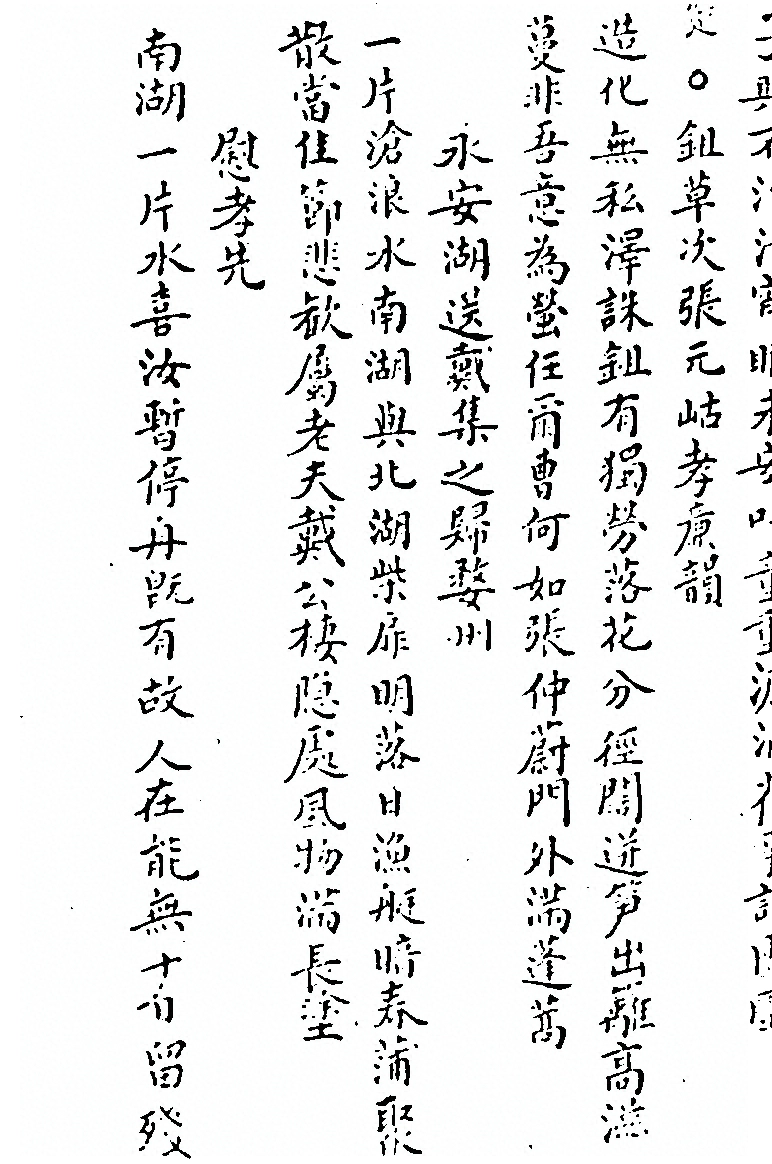 鉏草次張元岵孝廉韻
造化無私澤誅鉏有獨勞落花分徑闊迸笋出籬高滋
蔓非吾意為螢任爾曹何如張仲蔚門外滿蓬蒿
永安湖送戴集之歸婺州
一片滄浪水南湖與北湖柴扉明落日漁艇暗春蒲聚
散當佳節悲歡屬老夫戴公棲隱處風物滿長塗
慰孝先
南湖一片水喜汝暫停舟既有故人在能無十旬留殘